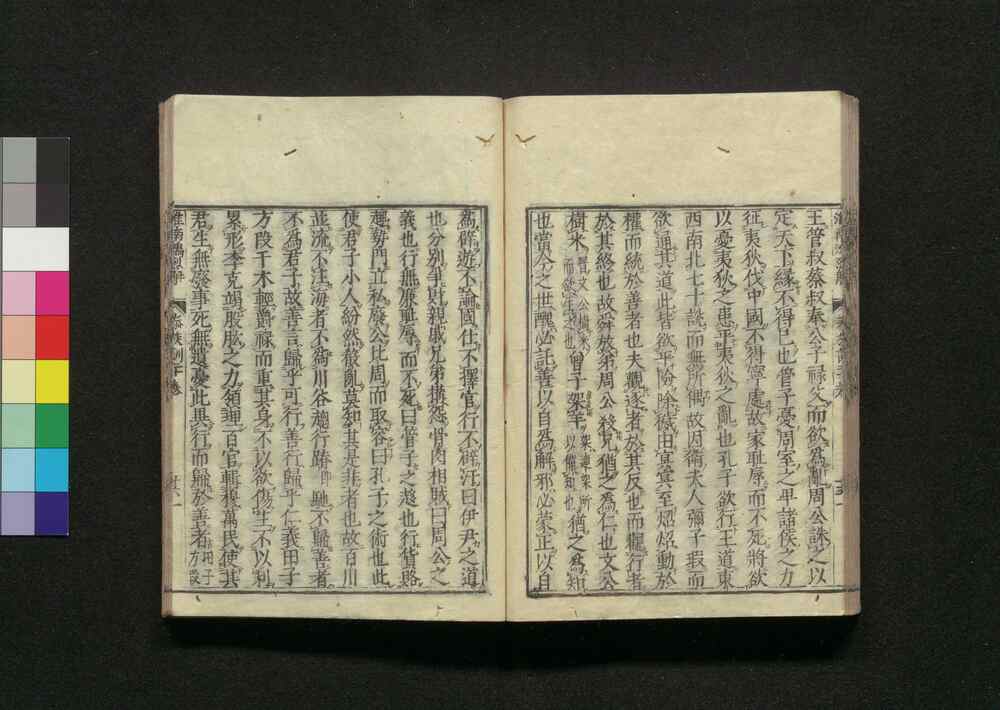 王管叔蔡叔奉公子祿父而欲爲亂周公誅之以
定天下緣不得已也管子憂周室之卑諸侯之力
征夷狄伐中國民不得寧處故蒙耻辱而不死將欲
以憂夷狄之患平夷狄之亂也孔子欲行王道東
西南北七十說而無所偶故因衛夫人彌子瑕而
欲通其道此皆欲平險除穢由冥冥至炤炤動於
權而統於善者也夫觀逐者於其反也而觀行者
於其終也故舜放弟周公殺兄猶之爲仁也文公
樹米曾子架羊猶之爲知
也當今之世醜必託善以自爲解邪必蒙正以自
爲辟遊不論國仕不擇官行不辟汙曰伊尹之道
也分別爭財親戚兄弟搆怨骨肉相賊曰周公之
義也行無廉耻辱而不死曰管子之趨也行貨賂
趣勢門立私廢公比周而取容曰孔子之術也此
使君子小人紛然殽亂莫知其是非者也故百川
並流不注海者不爲川谷趨行蹐馳不歸善者
不爲君子故善言歸乎可行善行歸乎仁義田子
方段干木輕爵祿而重其身不以欲傷生不以利
累形李克竭股肱之力領理百官輯穆萬民使其
君生無廢事死無遺憂此異行而歸於善者